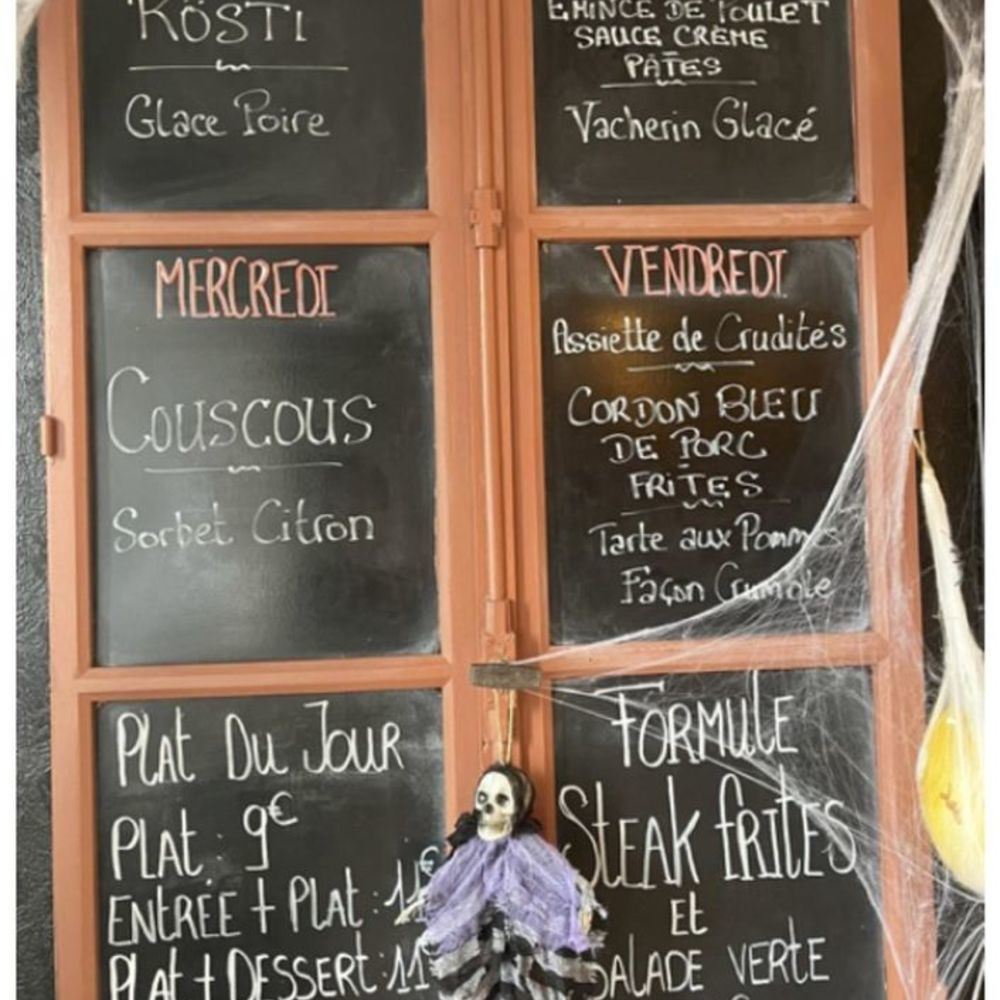 RÖSTI
Glace Poire
EMINCÉ DE POULET
SAUCE CRÈME
PÂTES
Vacherin Glacé
MERCREDI
Couscous
Sorbet Citron
VENDREDI
Assiette de Crudités
CORDON BLEU
DE PORC
FRITES
Tarte aux Pommes
Façon Crumble
PLAT DU JOUR
PLAT : 9€
ENTRÉE + PLAT : 11€
PLAT + DESSERT : 11€
FORMULE
STEAK FRITES
ET
SALADE VERTE